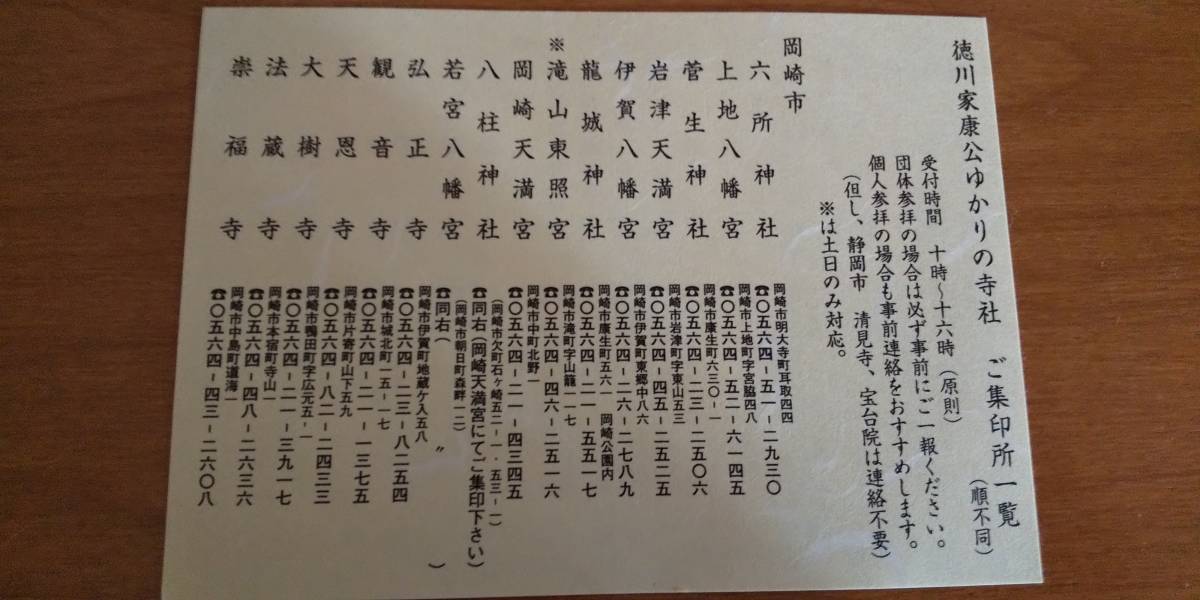 徳川家康公ゆかりの寺社　ご集印所一覧
（順不同）
受付時間　十時〜十六時（原則）
団体参拝の場合は必ず事前にご一報ください。
個人参拝の場合も事前連絡をおすすめします。
（但し、静岡市　清見寺、宝台院は連絡不要）
※は土日のみ対応。
岡崎市
六所神社
岡崎市明大寺町耳取四四
☎〇五六四-五一-二九三〇
上地八幡宮
岡崎市上地町字宮脇四八
☎〇五六四-五二-六一四五
菅生神社
岡崎市康生町六三〇-一
☎〇五六四-二三-二五〇六
岩津天満宮
岡崎市岩津町字東山五三
☎〇五六四-四五-二五二五
伊賀八幡宮
岡崎市伊賀町東郷中八六
☎〇五六四-二六-二七八九
龍城神社
岡崎市康生町五六一　岡崎公園内
☎〇五六四-二一-五五一七
※滝山東照宮
岡崎市滝町字山籠一一七
☎〇五六四-四六-二五一六
岡崎天満宮
岡崎市中町北野一
☎〇五六四-二一-四三四五
八柱神社
（岡崎市欠町石ヶ崎五二-一・五三-一）
☎同右（岡崎天満宮にてご集印下さい）
若宮八幡宮
（岡崎市朝日町森畔一二）
☎同右（　〃　）
弘正寺
岡崎市伊賀町地蔵ケ入五八
☎〇五六四-二三-八二五四
観音寺
岡崎市城北町一五-一七
☎〇五六四-二一-一三七五
天恩寺
岡崎市片寄町山下五九
☎〇五六四-八二-二四三三
大樹寺
岡崎市鴨田町字広元五-一
☎〇五六四-二一-三九一七
法蔵寺
岡崎市本宿町寺山一
☎〇五六四-四八-二六三六
崇福寺
岡崎市中島町町道海一
☎〇五六四-四三-二六〇八